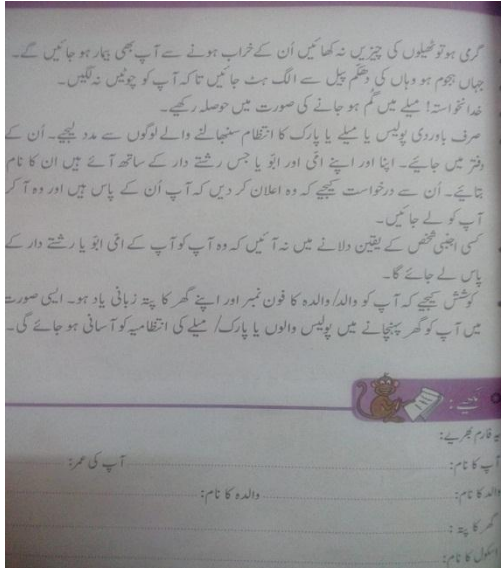 گرمی ہو تو ٹھیلوں کی چیزیں نہ کھائیں اُن کے خراب ہونے سے آپ بھی بیمار ہو جائیں گے۔
جہاں ہجوم ہو وہاں کی دھکّم پیل سے الگ ہٹ جائیں تاکہ آپ کو چوٹیں نہ لگیں۔
خدانخواستہ! میلے میں گُم ہو جانے کی صورت میں حوصلہ رکھیے۔
صرف باوردی پولیس یا میلے یا پارک کا انتظام سنبھالنے والے لوگوں سے مدد لیجیے۔ اُن کے
دفتر میں جائیے۔ اپنا اور اپنے امّی اور ابّو یا جس رشتے دار کے ساتھ آئے ہیں ان کا نام
بتائیے۔ اُن سے درخواست کیجیے کہ وہ اعلان کر دیں کہ آپ اُن کے پاس ہیں اور وہ آ کر
آپ کو لے جائیں۔
کسی اجنبی شخص کے یقین دلانے میں نہ آئیں کہ وہ آپ کو آپ کے امّی ابّو یا رشتے دار کے
پاس لے جائے گا۔
کوشش کیجیے کہ آپ کو والد/والدہ کا فون نمبر اور اپنے گھر کا پتہ زبانی یاد ہو۔ ایسی صورت
میں آپ کو گھر پہنچانے میں پولیس والوں یا پارک/ میلے کی انتظامیہ کو آسانی ہو جائے گی۔
لکھیے:
یہ فارم بھریے:
آپ کا نام: آپ کی عمر:
والد کا نام: والدہ کا نام:
گھر کا پتہ:
اسکول کا نام: